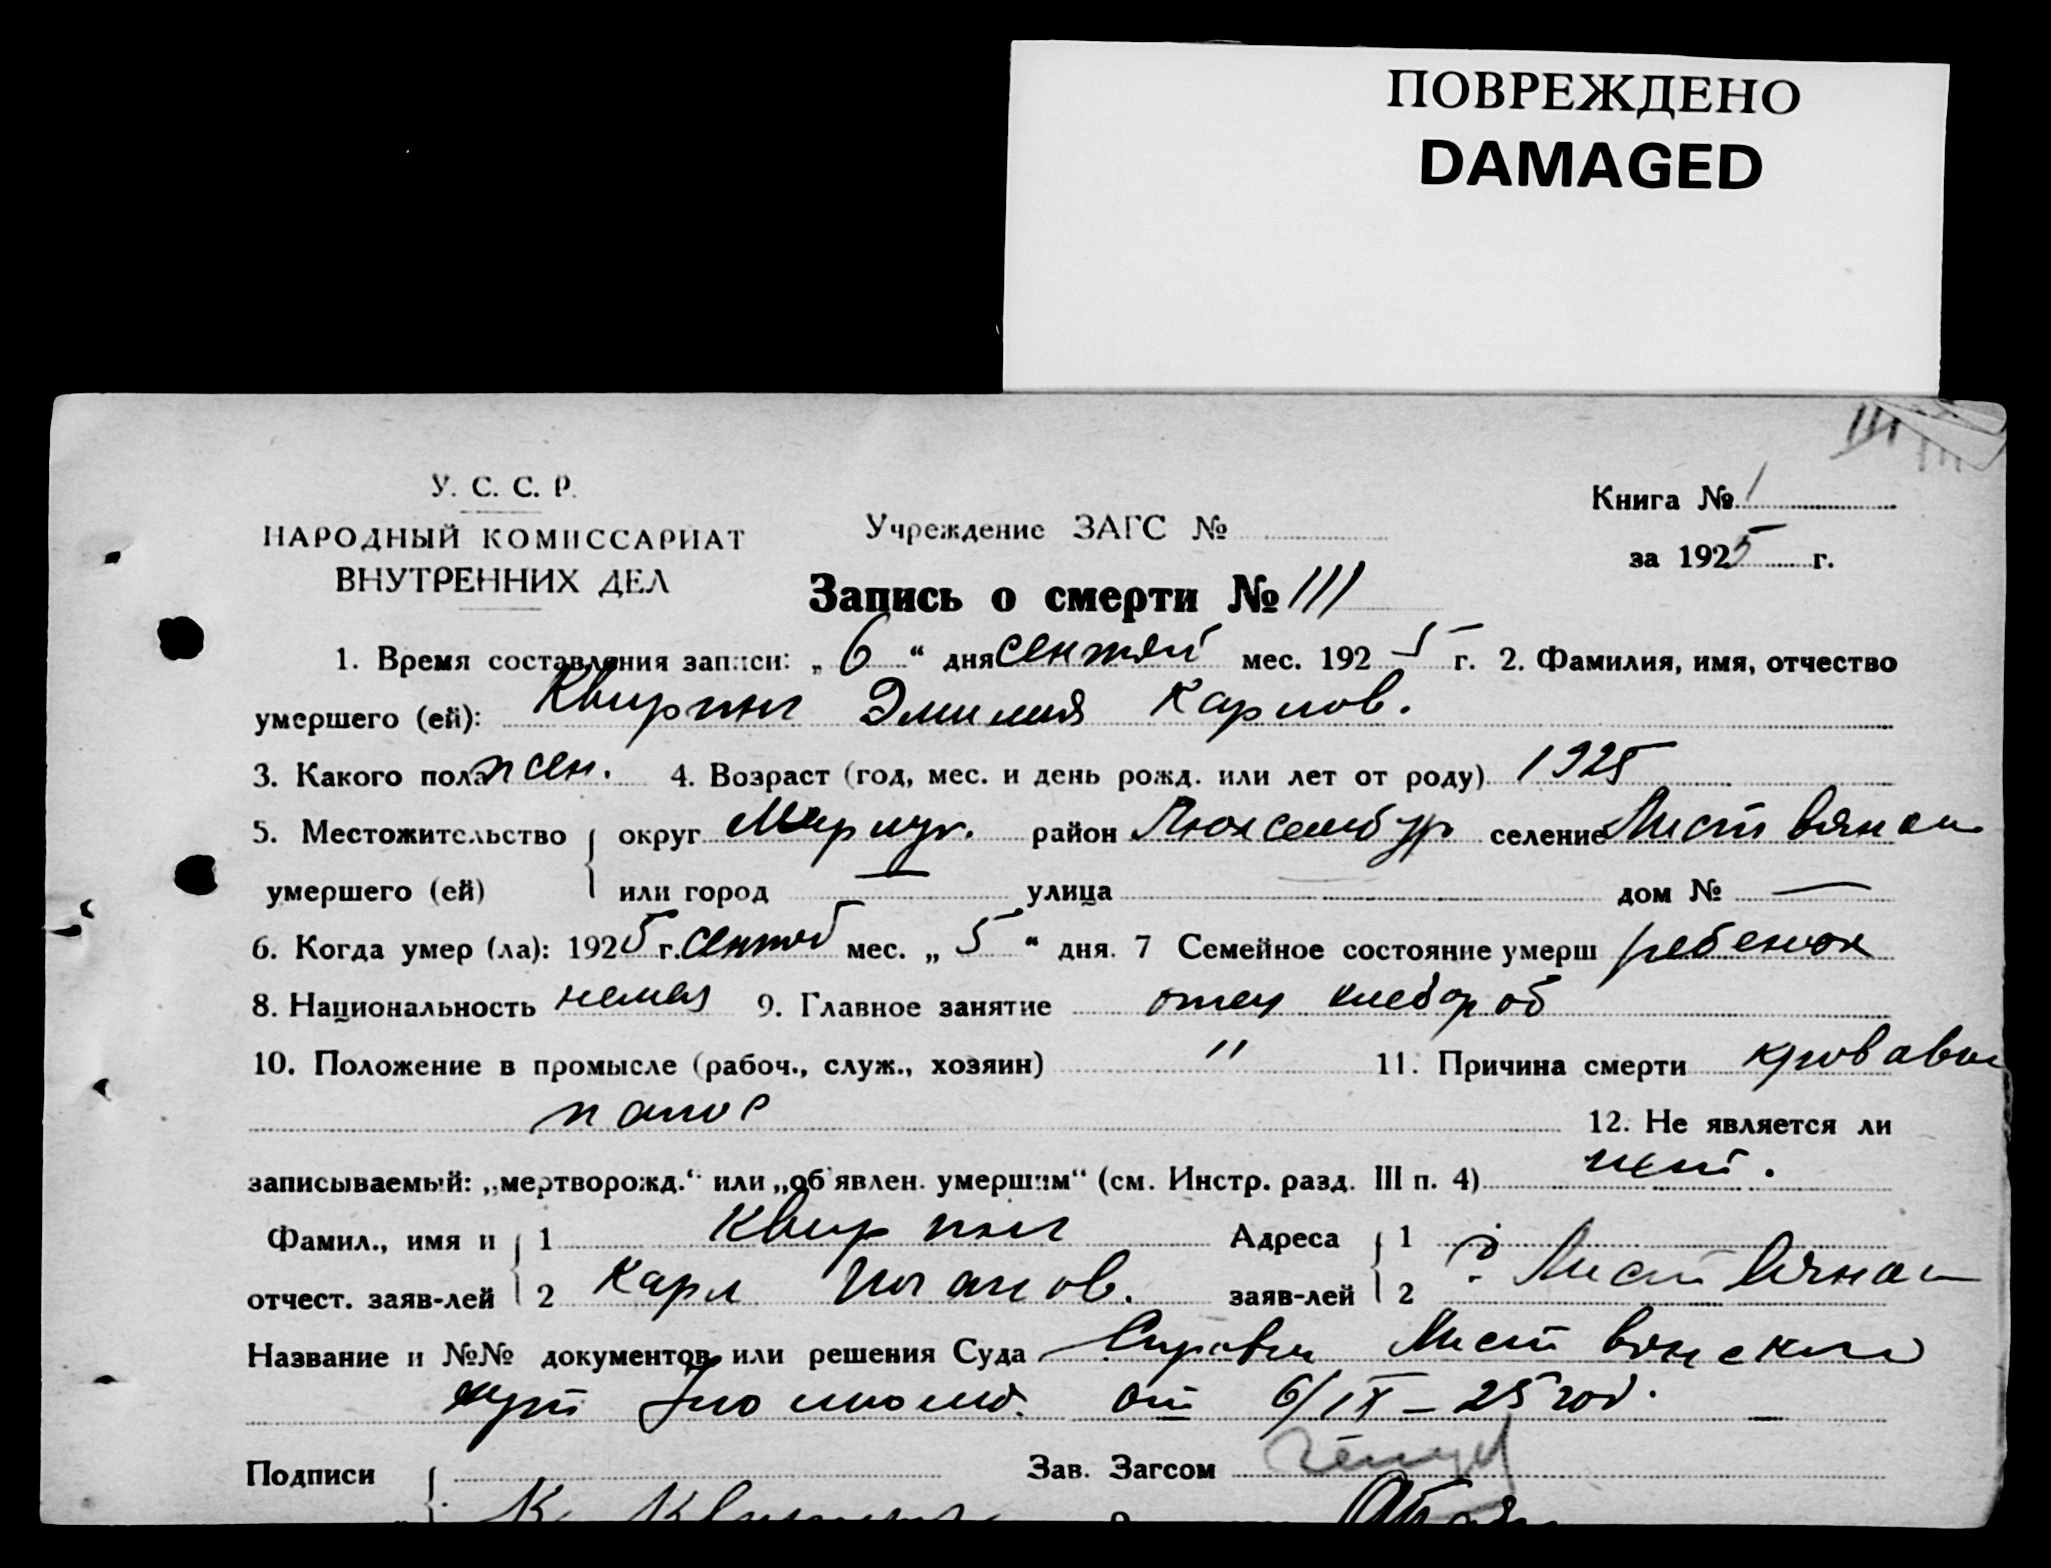 ПОВРЕЖДЕНО
DAMAGED
III
У. С. С. Р.
НАРОДНЫЙ КОМИССАРИАТ
ВНУТРЕННИХ ДЕЛ
Учреждение ЗАГС №
Книга № 1
за 1925 г.
Запись о смерти № 111
1. Время составления записи: „ 6 “ дня сентяб мес. 1925 г. 2. Фамилия, имя, отчество
умершего (ей): Квиринг Эмилия Карлов.
3. Какого пола жен. 4. Возраст (год, мес. и день рожд. или лет от роду) 1925
5. Местожительство округ Мариуп. район Люксембур селение Листвянка
умершего (ей) или город — улица — дом № —
6. Когда умер (ла): 1925 г. сентяб мес. „ 5 “ дня. 7 Семейное состояние умерш ребенок
8. Национальность немец 9. Главное занятие отец хлебороб
10. Положение в промысле (рабоч., служ., хозяин) " 11. Причина смерти кровавый
понос 12. Не является ли
записываемый: „мертворожд.“ или „об'явлен. умершим“ (см. Инстр. разд. III п. 4) нет.
Фамил., имя и 1 Квиринг Адреса 1
отчест. заяв-лей 2 Карл заяв-лей 2 Листвянка
Название и №№ документов или решения Суда Справка Листвянского
от 6/IX – 25 год.
Подписи Зав. Загсом
К Квиринг